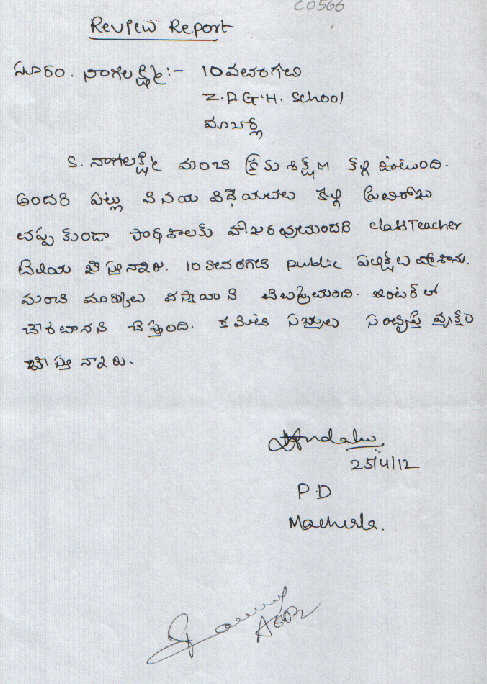 C0566
Review Report
నూరం. నాగలక్ష్మి :- 10వతరగతి
Z.P.G.H. School
మాచర్ల
కె. నాగలక్ష్మి మంచి క్రమశిక్షణ కల్గి ఉంటుంది.
అందరి పట్ల వినయ విధేయతలు కల్గి ప్రతిరోజు
తప్పకుండా పాఠశాలకు హాజరవుతుందని class Teacher
తెలియ చేస్తున్నారు. 10వతరగతి public పరీక్షలు వ్రాశాను.
మంచి మార్కులు వస్తాయని చెబుతుంది. ఇంటర్ లో
చేరతానని చెప్తుంది. కమిటి సభ్యులు సంతృప్తి వ్యక్తం
చేస్తున్నారు.
25/4/12
P.D
Macherla.